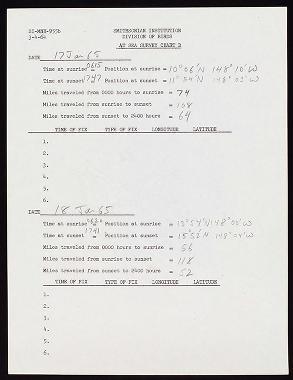 SI-MNH-955b
3-4-64
SMITHSONIAN INSTITUTION
DIVISION OF BIRDS
AT SEA SURVEY CHART B
DATE 17 Jan 65
Time at sunrise 0615 = Position at sunrise = 10°06'N 148°10'W
Time at sunset 1747 = Position at sunset = 11°54'N 148°03'W
Miles traveled from 0000 hours to sunrise = 74
Miles traveled from sunrise to sunset = 108
Miles traveled from sunset to 2400 hours = 64
TIME OF FIX TYPE OF FIX LONGITUDE LATITUDE
1.
2.
3.
4.
5.
6.
DATE 18 Jan 65
Time at sunrise 0620 = Position at sunrise = 13°54'N 148°00'W
Time at sunset 1741 = Position at sunset = 15°52'N 148°04'W
Miles traveled from 0000 hours to sunrise = 56
Miles traveled from sunrise to sunset = 118
Miles traveled from sunset to 2400 hours = 52
TIME OF FIX TYPE OF FIX LONGITUDE LATITUDE
1.
2.
3.
4.
5.
6.